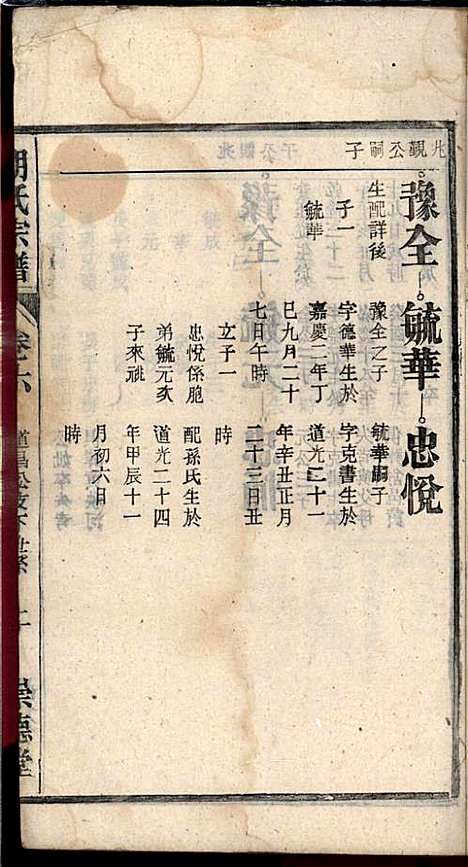 兆觀公嗣子
豫全
毓華
忠悅
生配詳後
子一
毓華
豫全之子
字德華生於
嘉慶二年丁
巳九月二十
七日午時
立子一
忠悅係胞
弟毓元次
子來祧
毓華嗣子
字克書生於
道光二十一
年辛丑正月
二十三日丑
時
配孫氏生於
道光二十四
年甲辰十一
月初六日
時
胡氏宗譜
卷六
崇德堂